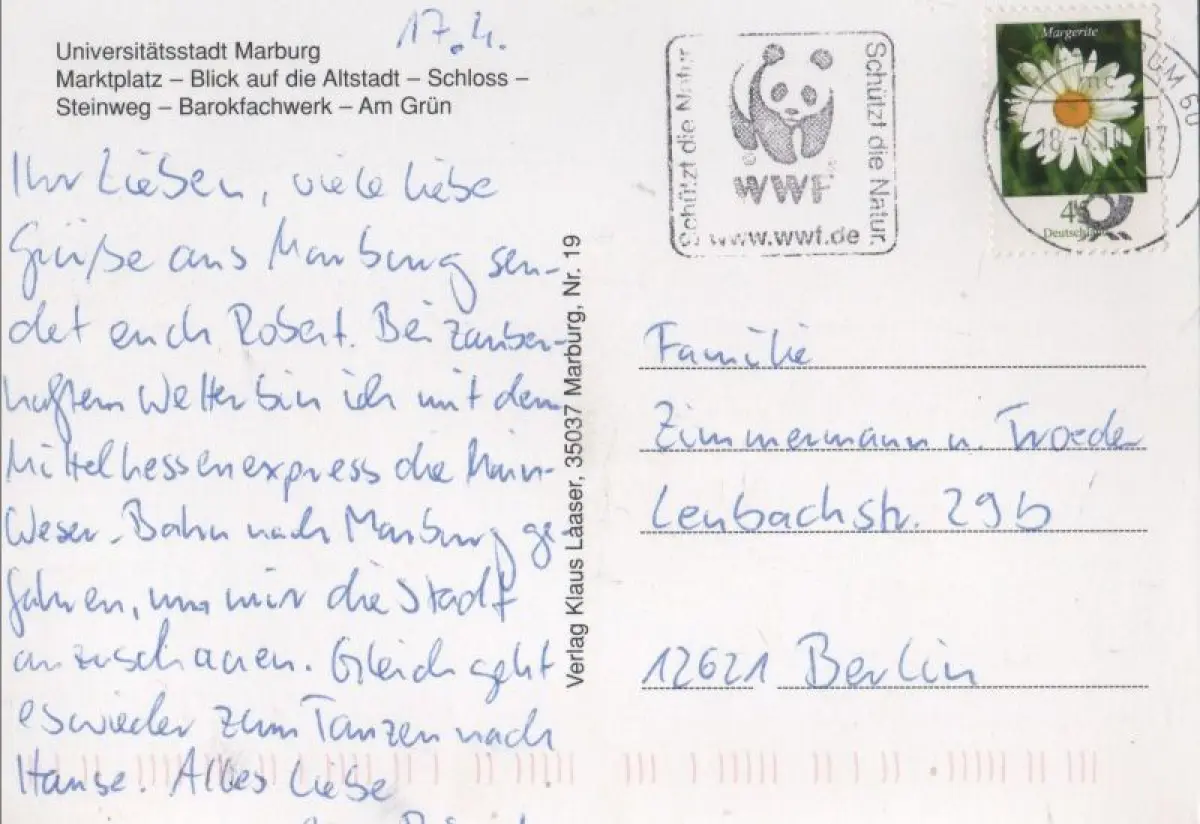 17.4.
Universitätsstadt Marburg
Marktplatz – Blick auf die Altstadt – Schloss –
Steinweg – Barokfachwerk – Am Grün
Ihr Lieben, viele liebe
Grüße aus Marburg sen-
det euch Robert. Bei zauber-
haftem Wetter bin ich mit dem
Mittelhessenexpress die Main-
Weser-Bahn nach Marburg ge-
fahren, um mir die Stadt
anzuschauen. Gleich geht
es wieder zum Tanzen nach
Hause. Alles Liebe
Verlag Klaus Laaser, 35037 Marburg, Nr. 19
Schützt die Natur
Schützt die Natur.
WWF
www.wwf.de
Margerite
45
Deutschl
Familie
Zimmermann u. Troeder
Lenbachstr. 29b
12621 Berlin